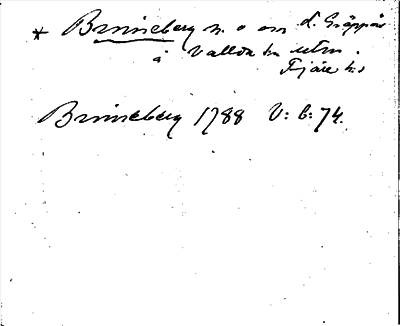 * Brinneberg n. o om d. Gräppås
å Vallda sn utm.
Fjäre hd
Brinneberg 1788 V: b: 74.